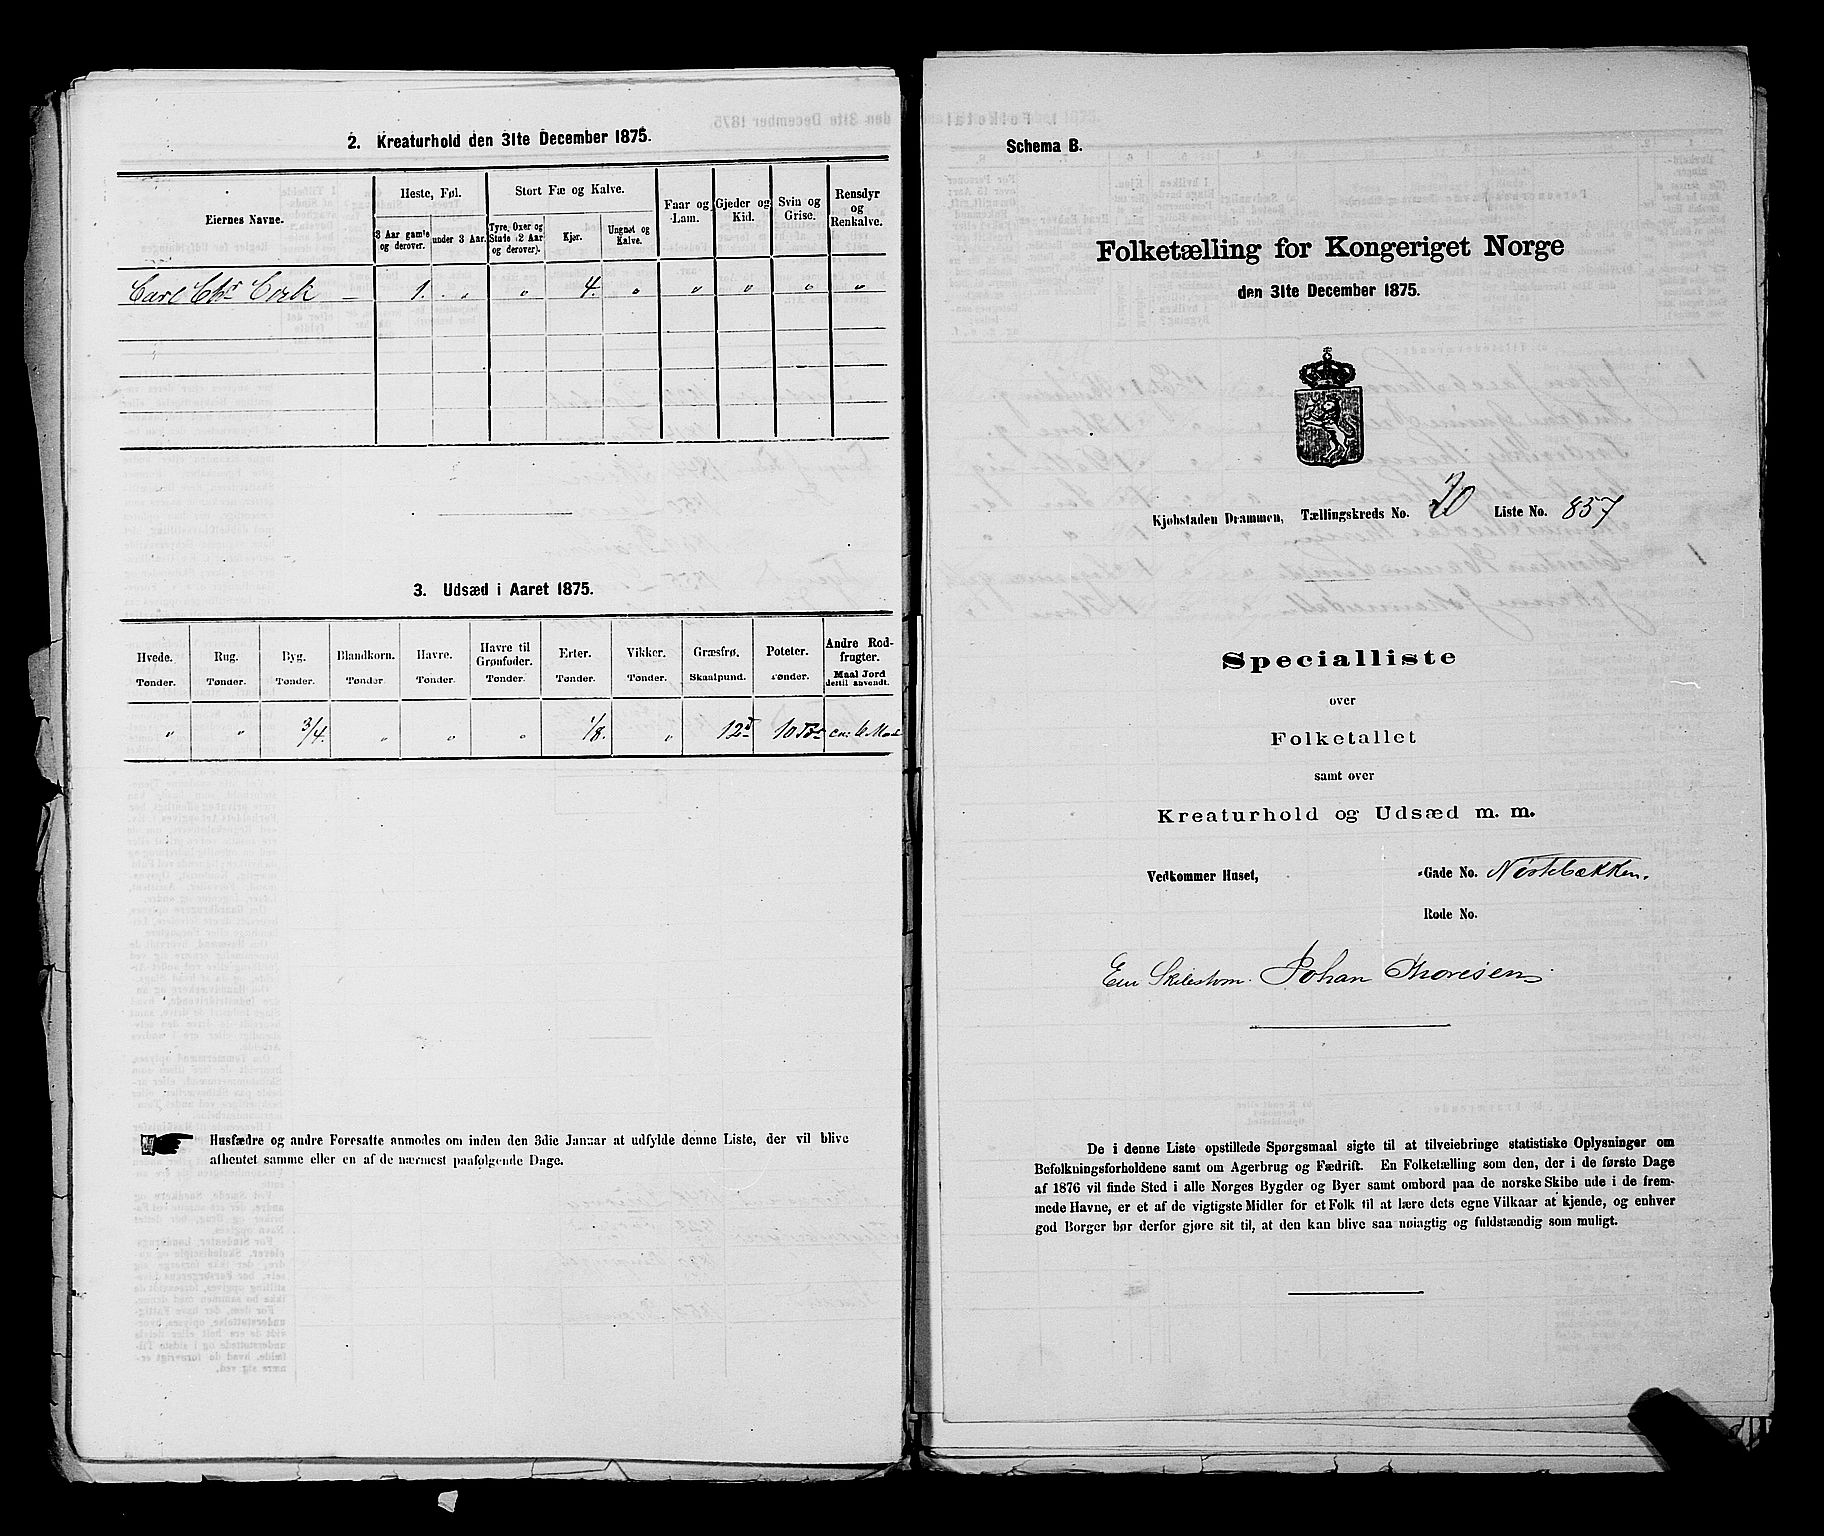 2. Kreaturhold den 31te December 1875.
Eiernes Navne.
Heste, Føl.
Stort Fæ og Kalve.
Faar og Lam.
Gjeder og Kid.
Svin og Grise.
Rensdyr og Renkalve.
3 Aar gamle og derover.
under 3 Aar.
Tyre, Oxer og Stude (2 Aar og derover).
Kjør.
Ungnøt og Kalve.
Carl Chr — 1. „ „ 4. „ „ „ „ „
3. Udsæd i Aaret 1875.
Hvede. Rug. Byg. Blandkorn. Havre. Havre til Grønfoder. Erter. Vikker. Græsfrø. Poteter. Andre Rodfrugter.
Tønder. Tønder. Tønder. Tønder. Tønder. Tønder. Tønder. Tønder. Skaalpund. Tønder. Maal Jord dertil anvendt.
„ „ 3/4. „ „ „ 1/8. „ 12 10
Husfædre og andre Foresatte anmodes om inden den 3die Januar at udfylde denne Liste, der vil blive
afhentet samme eller en af de nærmest paafølgende Dage.
Schema B.
Folketælling for Kongeriget Norge
den 31te December 1875.
Kjøbstaden Drammen, Tællingskreds No. 20 Liste No. 857
Specialliste
over
Folketallet
samt over
Kreaturhold og Udsæd m. m.
Vedkommer Huset, -Gade No. Nørtebækken.
Rode No.
Eier Johan Thoresen
De i denne Liste opstillede Spørgsmaal sigte til at tilveiebringe statistiske Oplysninger om
Befolkningsforholdene samt om Agerbrug og Fædrift. En Folketælling som den, der i de første Dage
af 1876 vil finde Sted i alle Norges Bygder og Byer samt ombord paa de norske Skibe ude i de frem-
mede Havne, er et af de vigtigste Midler for et Folk til at lære dets egne Vilkaar at kjende, og enhver
god Borger bør derfor gjøre sit til, at den kan blive saa nøiagtig og fuldstændig som muligt.